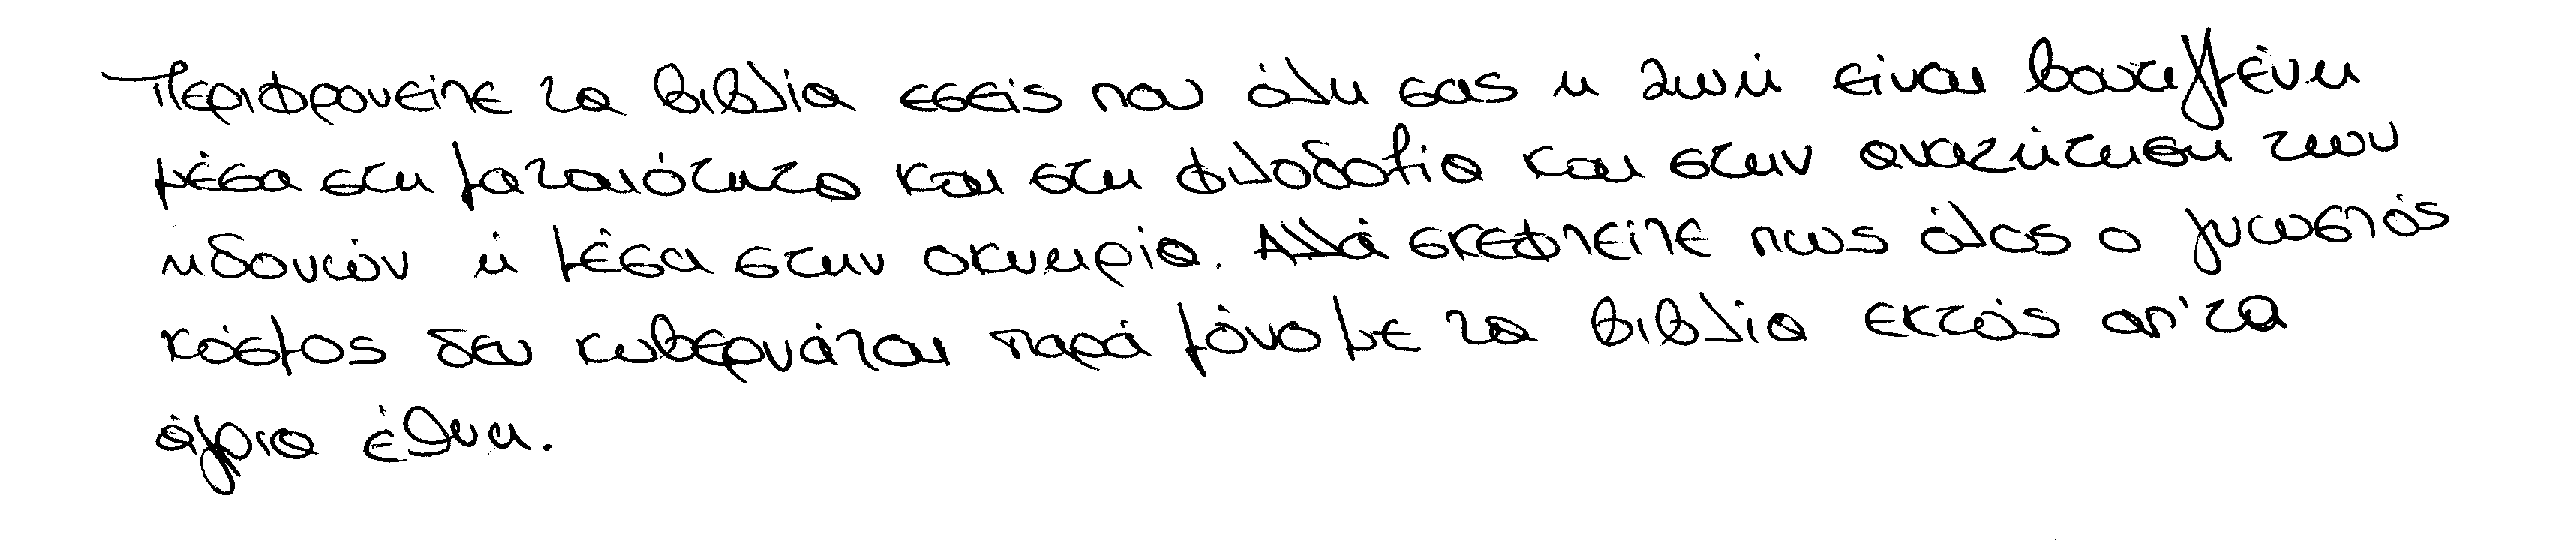 Περιφρονείτε τα βιβλία εσείς που όλη σας η ζωή είναι βουτηγμένη
μέσα στη ματαιότητα και στη φιλοδοξία και στην αναζήτηση των
ηδονών ή μέσα στην οκνηρία. Αλλά σκεφτείτε πως όλος ο γνωστός
κόσμος δεν κυβερνάται παρά μόνο με τα βιβλία εκτός απ' τα
άγρια έθνη.